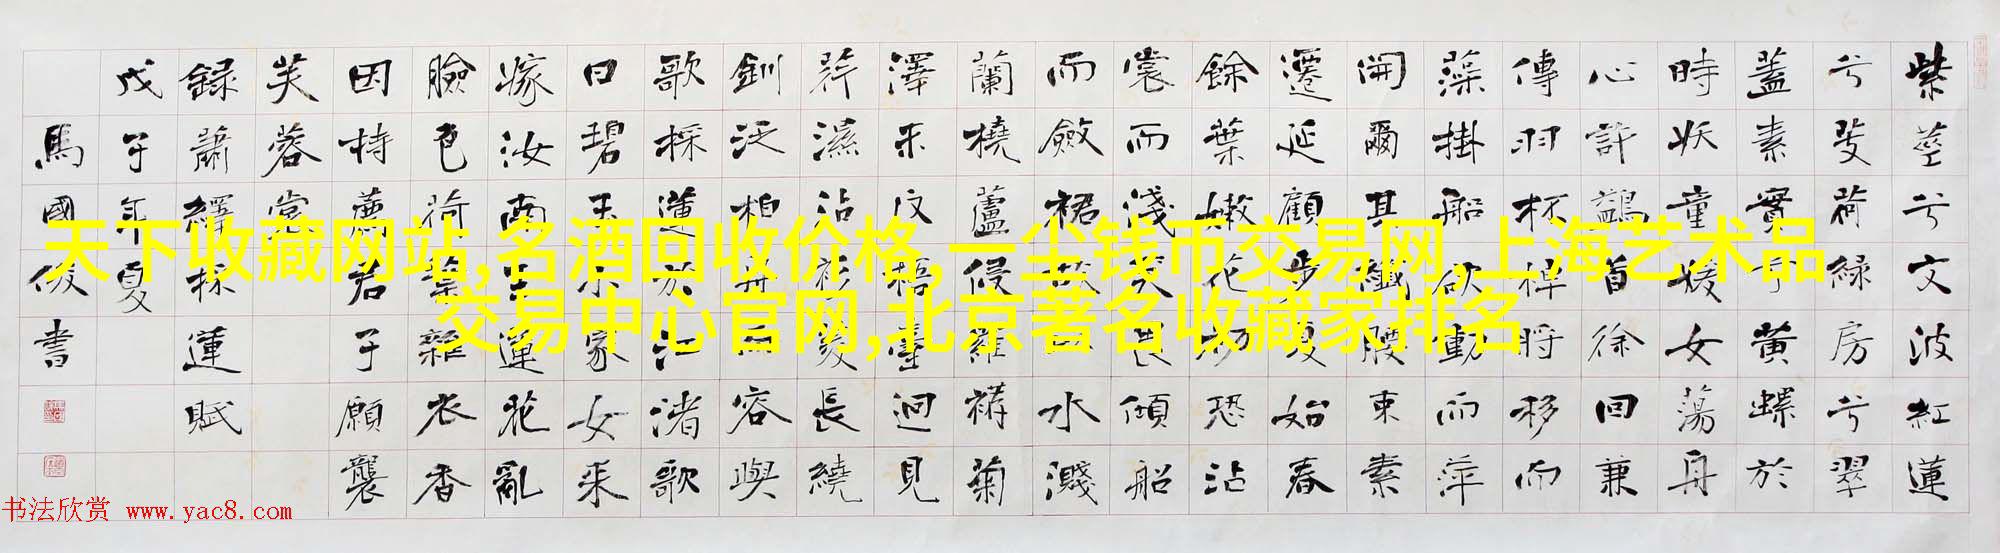 紫莖兮文波紅蓮
兮芰荷綠房兮翠
蓋素實兮黃螺於
時妖童媛女蕩舟
心許鷁首徐回兼
傳羽杯櫂將移而
藻掛船欲動而萍
開爾其纖腰束素
遷延顧步夏始春
餘葉嫩花初恐沾
裳而淺笑畏傾船
而斂裾故以水濺
蘭橈蘆侵羅褠菊
澤未反梧臺迥見
荇濕沾衫菱長繞
釧泛柏舟而容與
歌採蓮於江渚歌
曰碧玉小家女來
嫁汝南王蓮花亂
臉色荷葉雜衣香
因持薦君子願襲
芙蓉裳
錄蕭繹採蓮賦
戊子年夏
馬國俊書
天下收藏网站,名酒回收价格,一尘钱币交易网,上海艺术品
交易中心官网,北京著名收藏家排名
书法欣赏 www.yac8.com